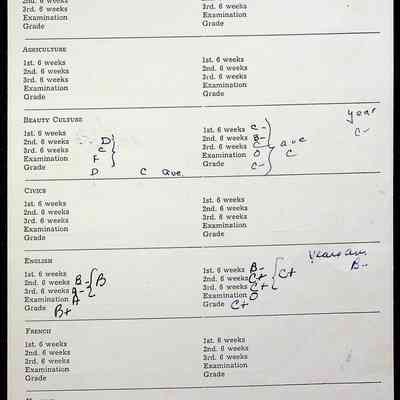 2nd. 6 weeks
3rd. 6 weeks 3rd. 6 weeks
Examination Examination
Grade Grade
AGRICULTURE
1st. 6 weeks 1st. 6 weeks
2nd. 6 weeks 2nd. 6 weeks
3rd. 6 weeks 3rd. 6 weeks
Examination Examination
Grade Grade
BEAUTY CULTURE year
1st. 6 weeks 1st. 6 weeks C- C-
2nd. 6 weeks D 2nd. 6 weeks B-
3rd. 6 weeks C 3rd. 6 weeks C ave
Examination F Examination O C
Grade D C ave. Grade C-
CIVICS
1st. 6 weeks 1st. 6 weeks
2nd. 6 weeks 2nd. 6 weeks
3rd. 6 weeks 3rd. 6 weeks
Examination Examination
Grade Grade
ENGLISH Years av.
1st. 6 weeks 1st. 6 weeks B- B-
2nd. 6 weeks B- B 2nd. 6 weeks C+ C+
3rd. 6 weeks A- 3rd. 6 weeks C+
Examination A Examination O
Grade B+ Grade C+
FRENCH
1st. 6 weeks 1st. 6 weeks
2nd. 6 weeks 2nd. 6 weeks
3rd. 6 weeks 3rd. 6 weeks
Examination Examination
Grade Grade